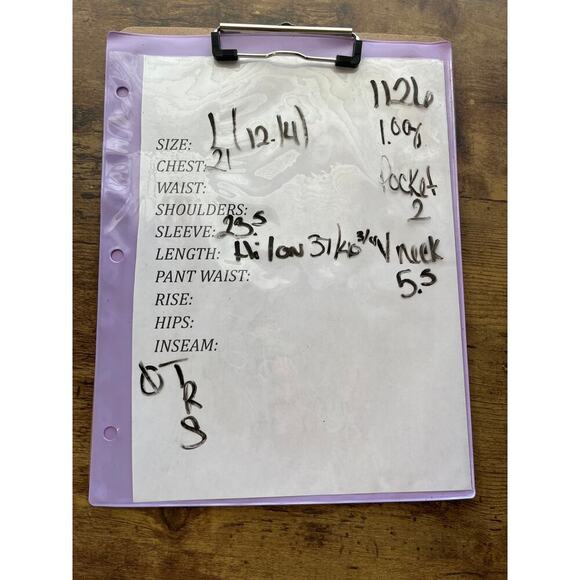 1126
SIZE: L (12-14)
1.00g
CHEST: 21
WAIST:
Pocket
2
SHOULDERS:
SLEEVE: 23.5
LENGTH: Hi/low 31/40 3/4 V neck
5.5
PANT WAIST:
RISE:
HIPS:
INSEAM:
T
R
S